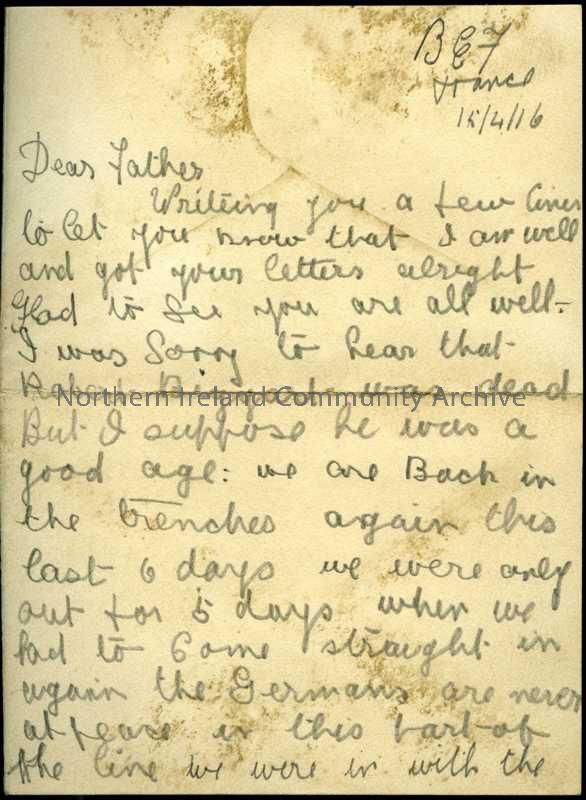 BEF
France
15/4/16
Dear Father
Writing you a few lines
to let you know that I am well
and got your letters alright
Glad to see you are all well-
I was Sorry to hear that
Robert was dead
Northern Ireland Community Archive
But I suppose he was a
good age: we are Back in
the trenches again this
last 6 days we were only
out for 5 days when we
had to Come straight in
again the Germans are never
at peace in this part of
the line we were in with the